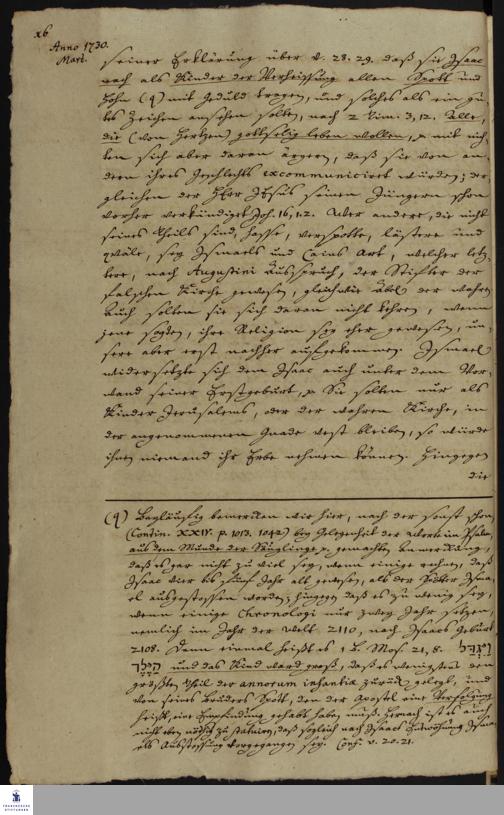 26
Anno 1730.
Mart.
seiner Erklärung über v. 28. 29. daß sie Isaac
nach als Kinder der Verheissung allen Spott und
Hohn (q) mit Geduld tragen, und solches als ein gu-
tes Zeichen ansehen solten, nach 2 Tim. 3, 12. Alle,
die (von Hertzen) gottselig leben wollen, mit nich-
ten sich aber daran ärgern, daß sie von an-
dern ihres Geschlechts excommuniciret würden; der-
gleichen der HErr JEsus seinen Jüngern schon
vorher verkündiget Joh. 16, 1.2. Wer andere, die nicht
seines Theils sind, hasse, verspotte, lästere und
quäle, sey Ismaels und Cains Art, welcher letz-
tere, nach Augustini Ausspruch, der Stifter der
falschen Kirche gewesen, gleichwie Abel der wahren
Auch solten sie sich daran nicht kehren, wenn
jene sagten, ihre Religion sey eher gewesen, un-
sere aber erst nachher aufgekommen. Ismael
widersetzte sich dem Isaac auch unter dem Vor-
wand seiner Erstgeburt, Sie solten nur als
Kinder Jerusalems, oder der wahren Kirche, in
der angenommenen Gnade vest bleiben, so würde
ihnen niemand ihr Erbe nehmen können. Hingegen
die
(q) Beyläufig bemercken wir hier, nach der sonst schon
(Contin. XXIV. p. 1013. 1042) bey Gelegenheit der Worte im Psalm,
aus dem Munde der Säuglinge gemachten Anmerckung,
daß es gar nicht zu viel sey, wenn einige rechnen, daß
Isaac vier bis fünf Jahr alt gewesen, als der Spötter Isma-
el ausgestossen worden; hingegen daß es zu wenig sey,
wenn einige Chronologi nur zwey Jahr setzen,
nemlich im Jahr der Welt 2110, nach Isaacs Geburt
2108. Denn einmal heißt es 1 B. Mos. 21, 8. ויגדל
הילד und das Kind ward groß, daß es wenigstens den
größten Theil der annorum infantiæ zurück gelegt, und
von seines Bruders Spott, den der Apostel eine Verfolgung
heißt, eine Empfindung gehabt haben muß. Hernach ist es auch
nicht eben nöthig zu statuiren, daß sogleich nach Isaacs Entwöhnung Isma-
els Ausstossung vorgegangen sey. Conf. v. 20. 21.
FRANCKESCHE
STIFTUNGEN